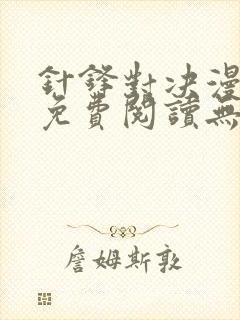 針鋒對決漫
免費閱讀無
詹姆斯敦